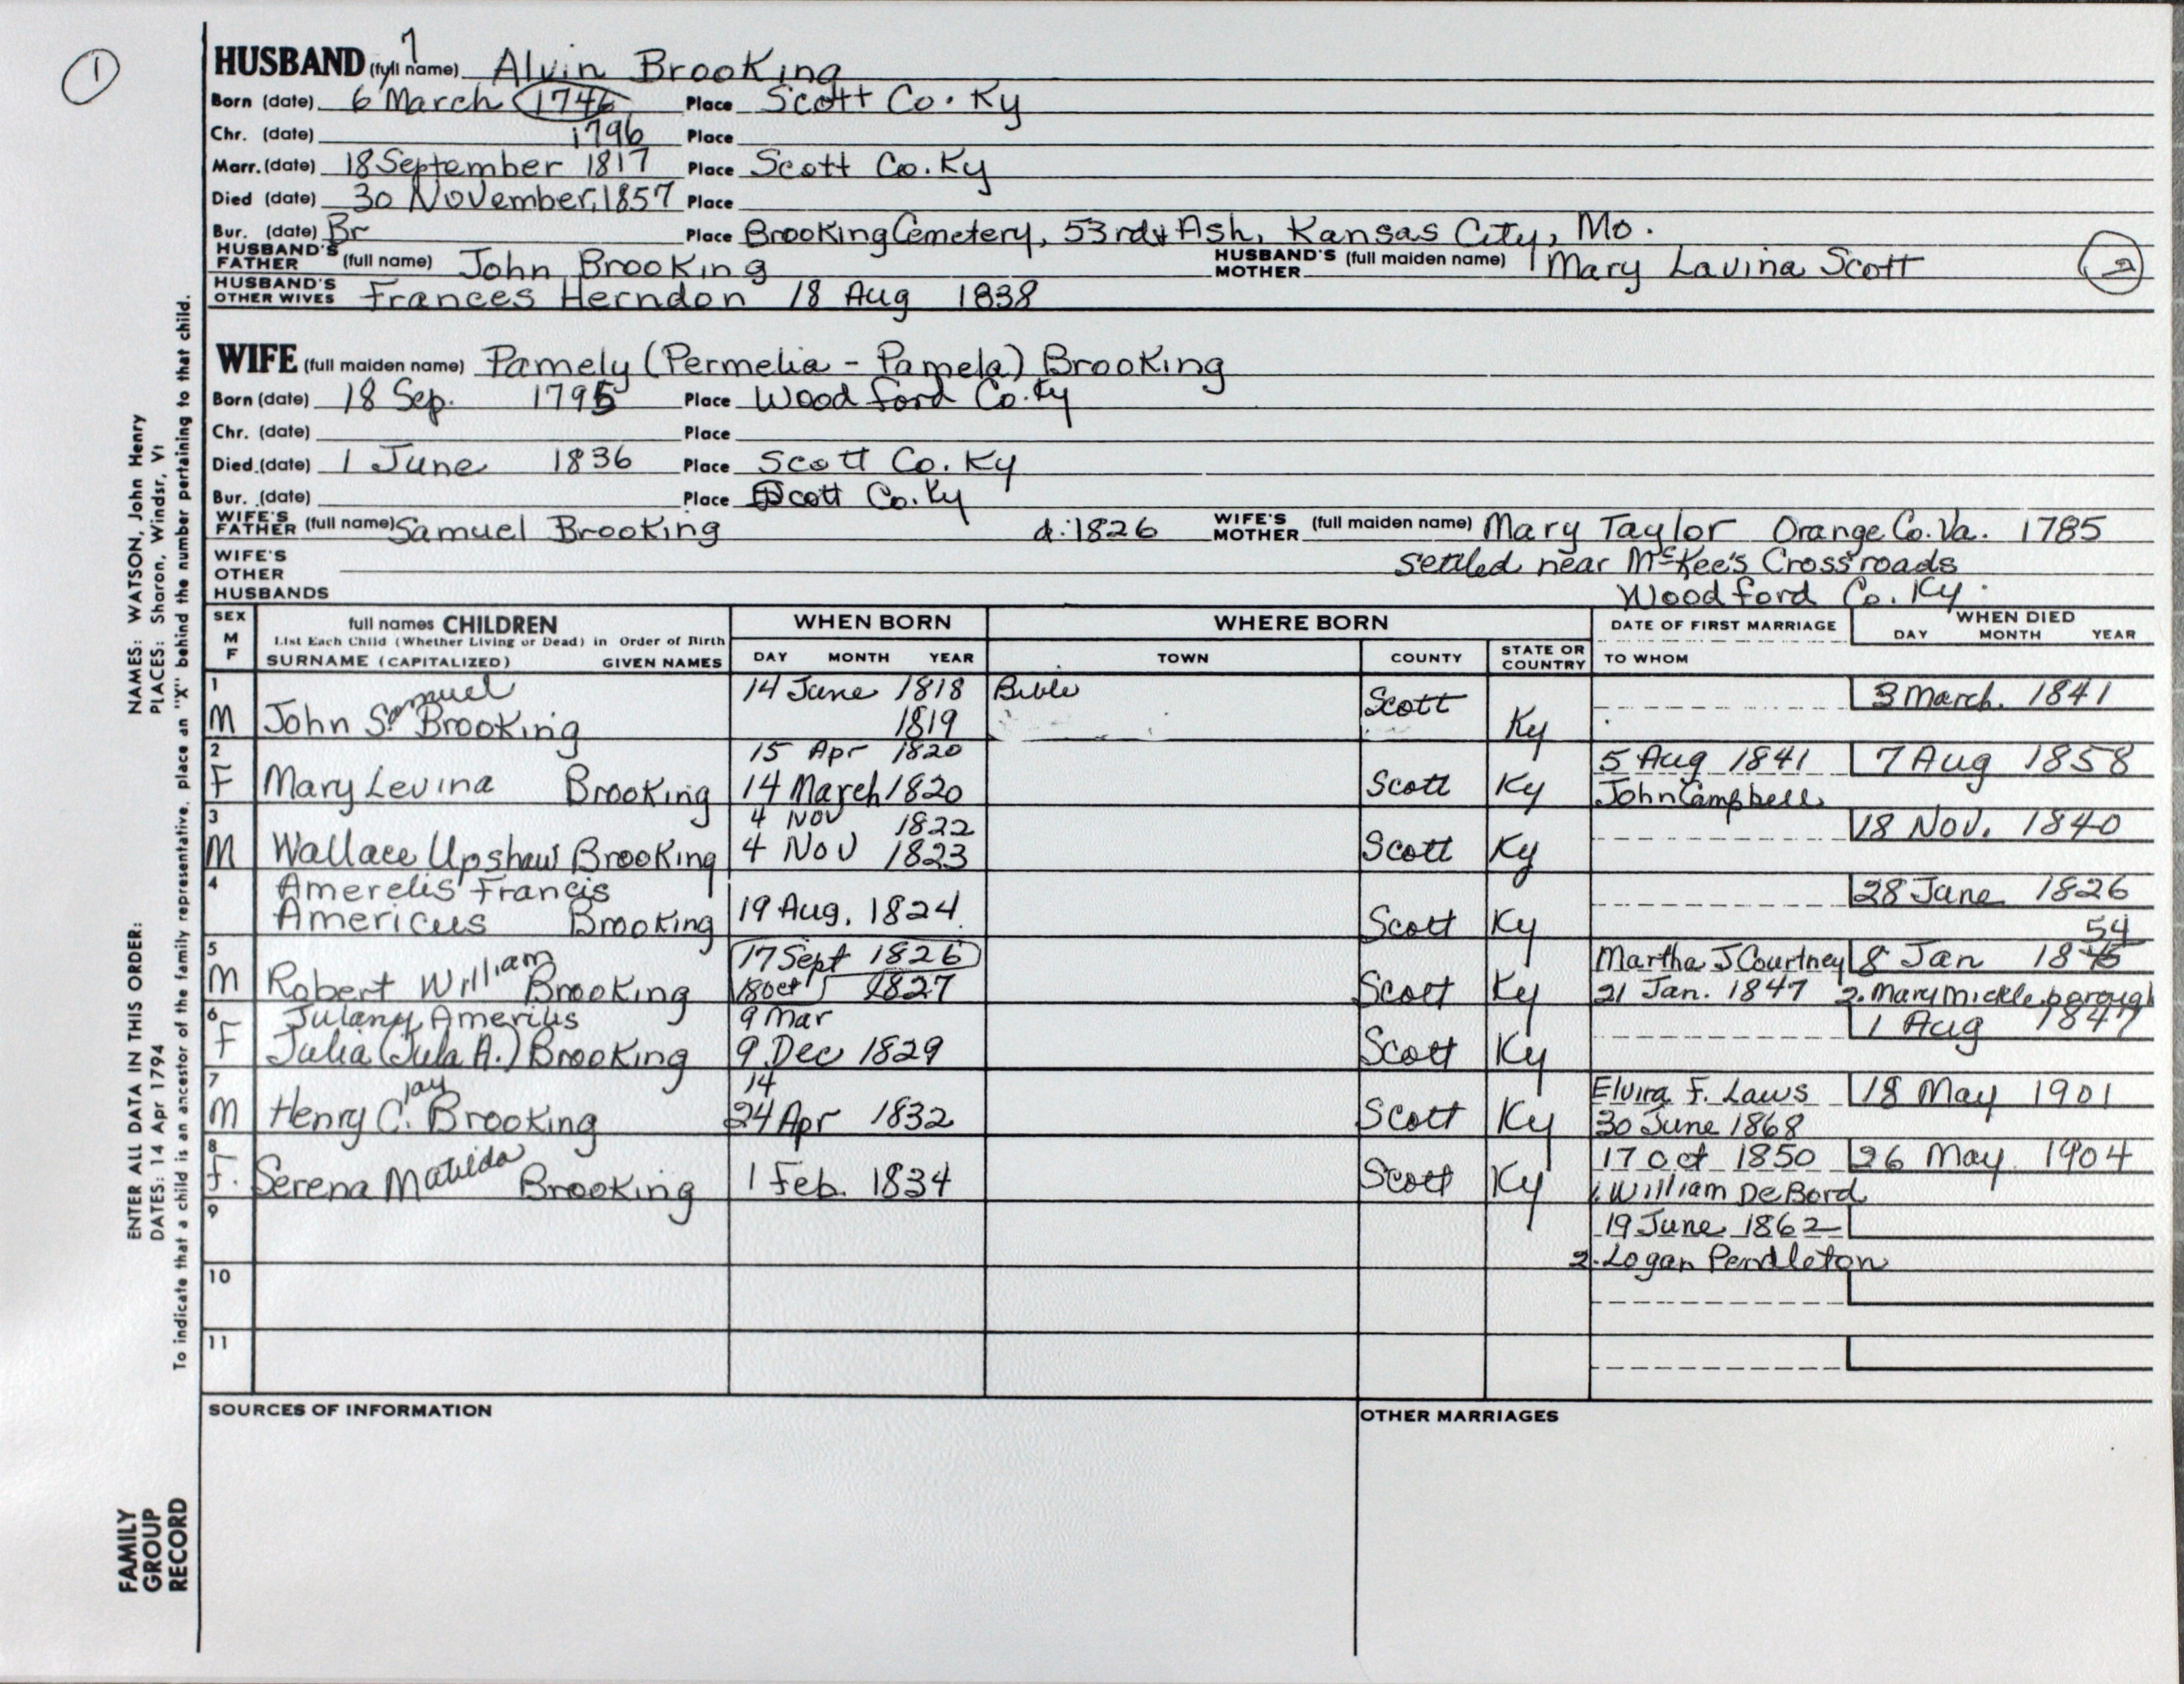 1
7
HUSBAND (full name) Alvin Brooking
Born (date) 6 March 1746 Place Scott Co. Ky
Chr. (date) 1796 Place
Marr. (date) 18 September 1817 Place Scott Co. Ky
Died (date) 30 November, 1857 Place
Bur. (date) Br Place Brooking Cemetery, 53rd & Ash, Kansas City, Mo.
HUSBAND'S FATHER (full name) John Brooking HUSBAND'S MOTHER (full maiden name) Mary Lavina Scott 2
HUSBAND'S OTHER WIVES Frances Herndon 18 Aug 1838
WIFE (full maiden name) Pamely (Permelia - Pamela) Brooking
Born (date) 18 Sep. 1795 Place Woodford Co. Ky
Chr. (date) Place
Died (date) 1 June 1836 Place Scott Co. Ky
Bur. (date) Place Scott Co. Ky
WIFE'S FATHER (full name) Samuel Brooking d. 1826 WIFE'S MOTHER (full maiden name) Mary Taylor Orange Co. Va. 1785
WIFE'S OTHER HUSBANDS settled near McKee's Crossroads
Woodford Co. Ky.
SEX M F full names CHILDREN WHEN BORN WHERE BORN DATE OF FIRST MARRIAGE WHEN DIED
List Each Child (Whether Living or Dead) in Order of Birth DAY MONTH YEAR
SURNAME (CAPITALIZED) GIVEN NAMES DAY MONTH YEAR TOWN COUNTY STATE OR COUNTRY TO WHOM
1 Samuel 14 June 1818 Bible Scott 3 March. 1841
M John S. Brooking 1819 Ky
2 15 Apr 1820 5 Aug 1841 7 Aug 1858
F Mary Levina Brooking 14 March 1820 Scott Ky John Campbell
3 4 Nov 1822 18 Nov. 1840
M Wallace Upshaw Brooking 4 Nov 1823 Scott Ky
4 Amerelis Francis 28 June 1826
Americus Brooking 19 Aug. 1824 Scott Ky
54
5 William 17 Sept 1826 Martha J Courtney 8 Jan 18
M Robert Brooking 18 Oct 1827 Scott Ky 21 Jan. 1847 2. Mary Mickleborough
6 Julany Amerilis 9 Mar 1 Aug 1847
F Julia (Jula A.) Brooking 9 Dec 1829 Scott Ky
7 Jay 14 Elvira F. Laws 18 May 1901
M Henry C. Brooking 24 Apr 1832 Scott Ky 30 June 1868
8 17 Oct 1850 26 May 1904
F. Serena Matilda Brooking 1 Feb. 1834 Scott Ky 1. William DeBord
9 19 June 1862
2. Logan Pendleton
10
11
SOURCES OF INFORMATION OTHER MARRIAGES
ENTER ALL DATA IN THIS ORDER: NAMES: WATSON, John Henry
DATES: 14 Apr 1794 PLACES: Sharon, Windsr, Vt
To indicate that a child is an ancestor of the family representative, place an "X" behind the number pertaining to that child.
FAMILY
GROUP
RECORD